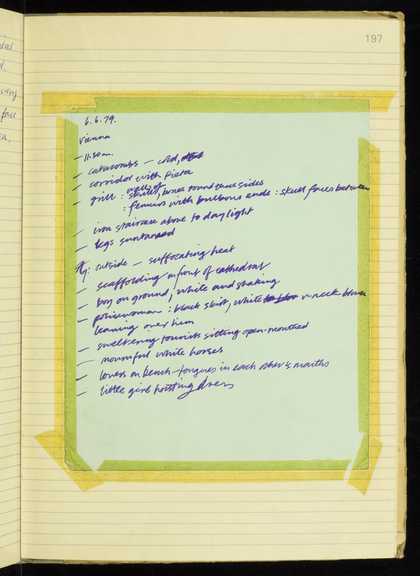 197
6.6.79.
Vienna
– 11.50am.
– catacombs – cold,
– corridor with Pieta
– grill : skulls, walls of bones round three sides
: femurs with bulbous ends : skull faces between
– iron staircase above to daylight
– legs suntanned
outside – suffocating heat
– scaffolding in front of cathedral
– boy on ground, white and shaking
– policewoman : black skirt, white v-neck blouse
leaning over him
– sweltering tourists sitting open-mouthed
– mournful white horses
– lovers on bench – tongues in each other's mouths
– little girl knitting